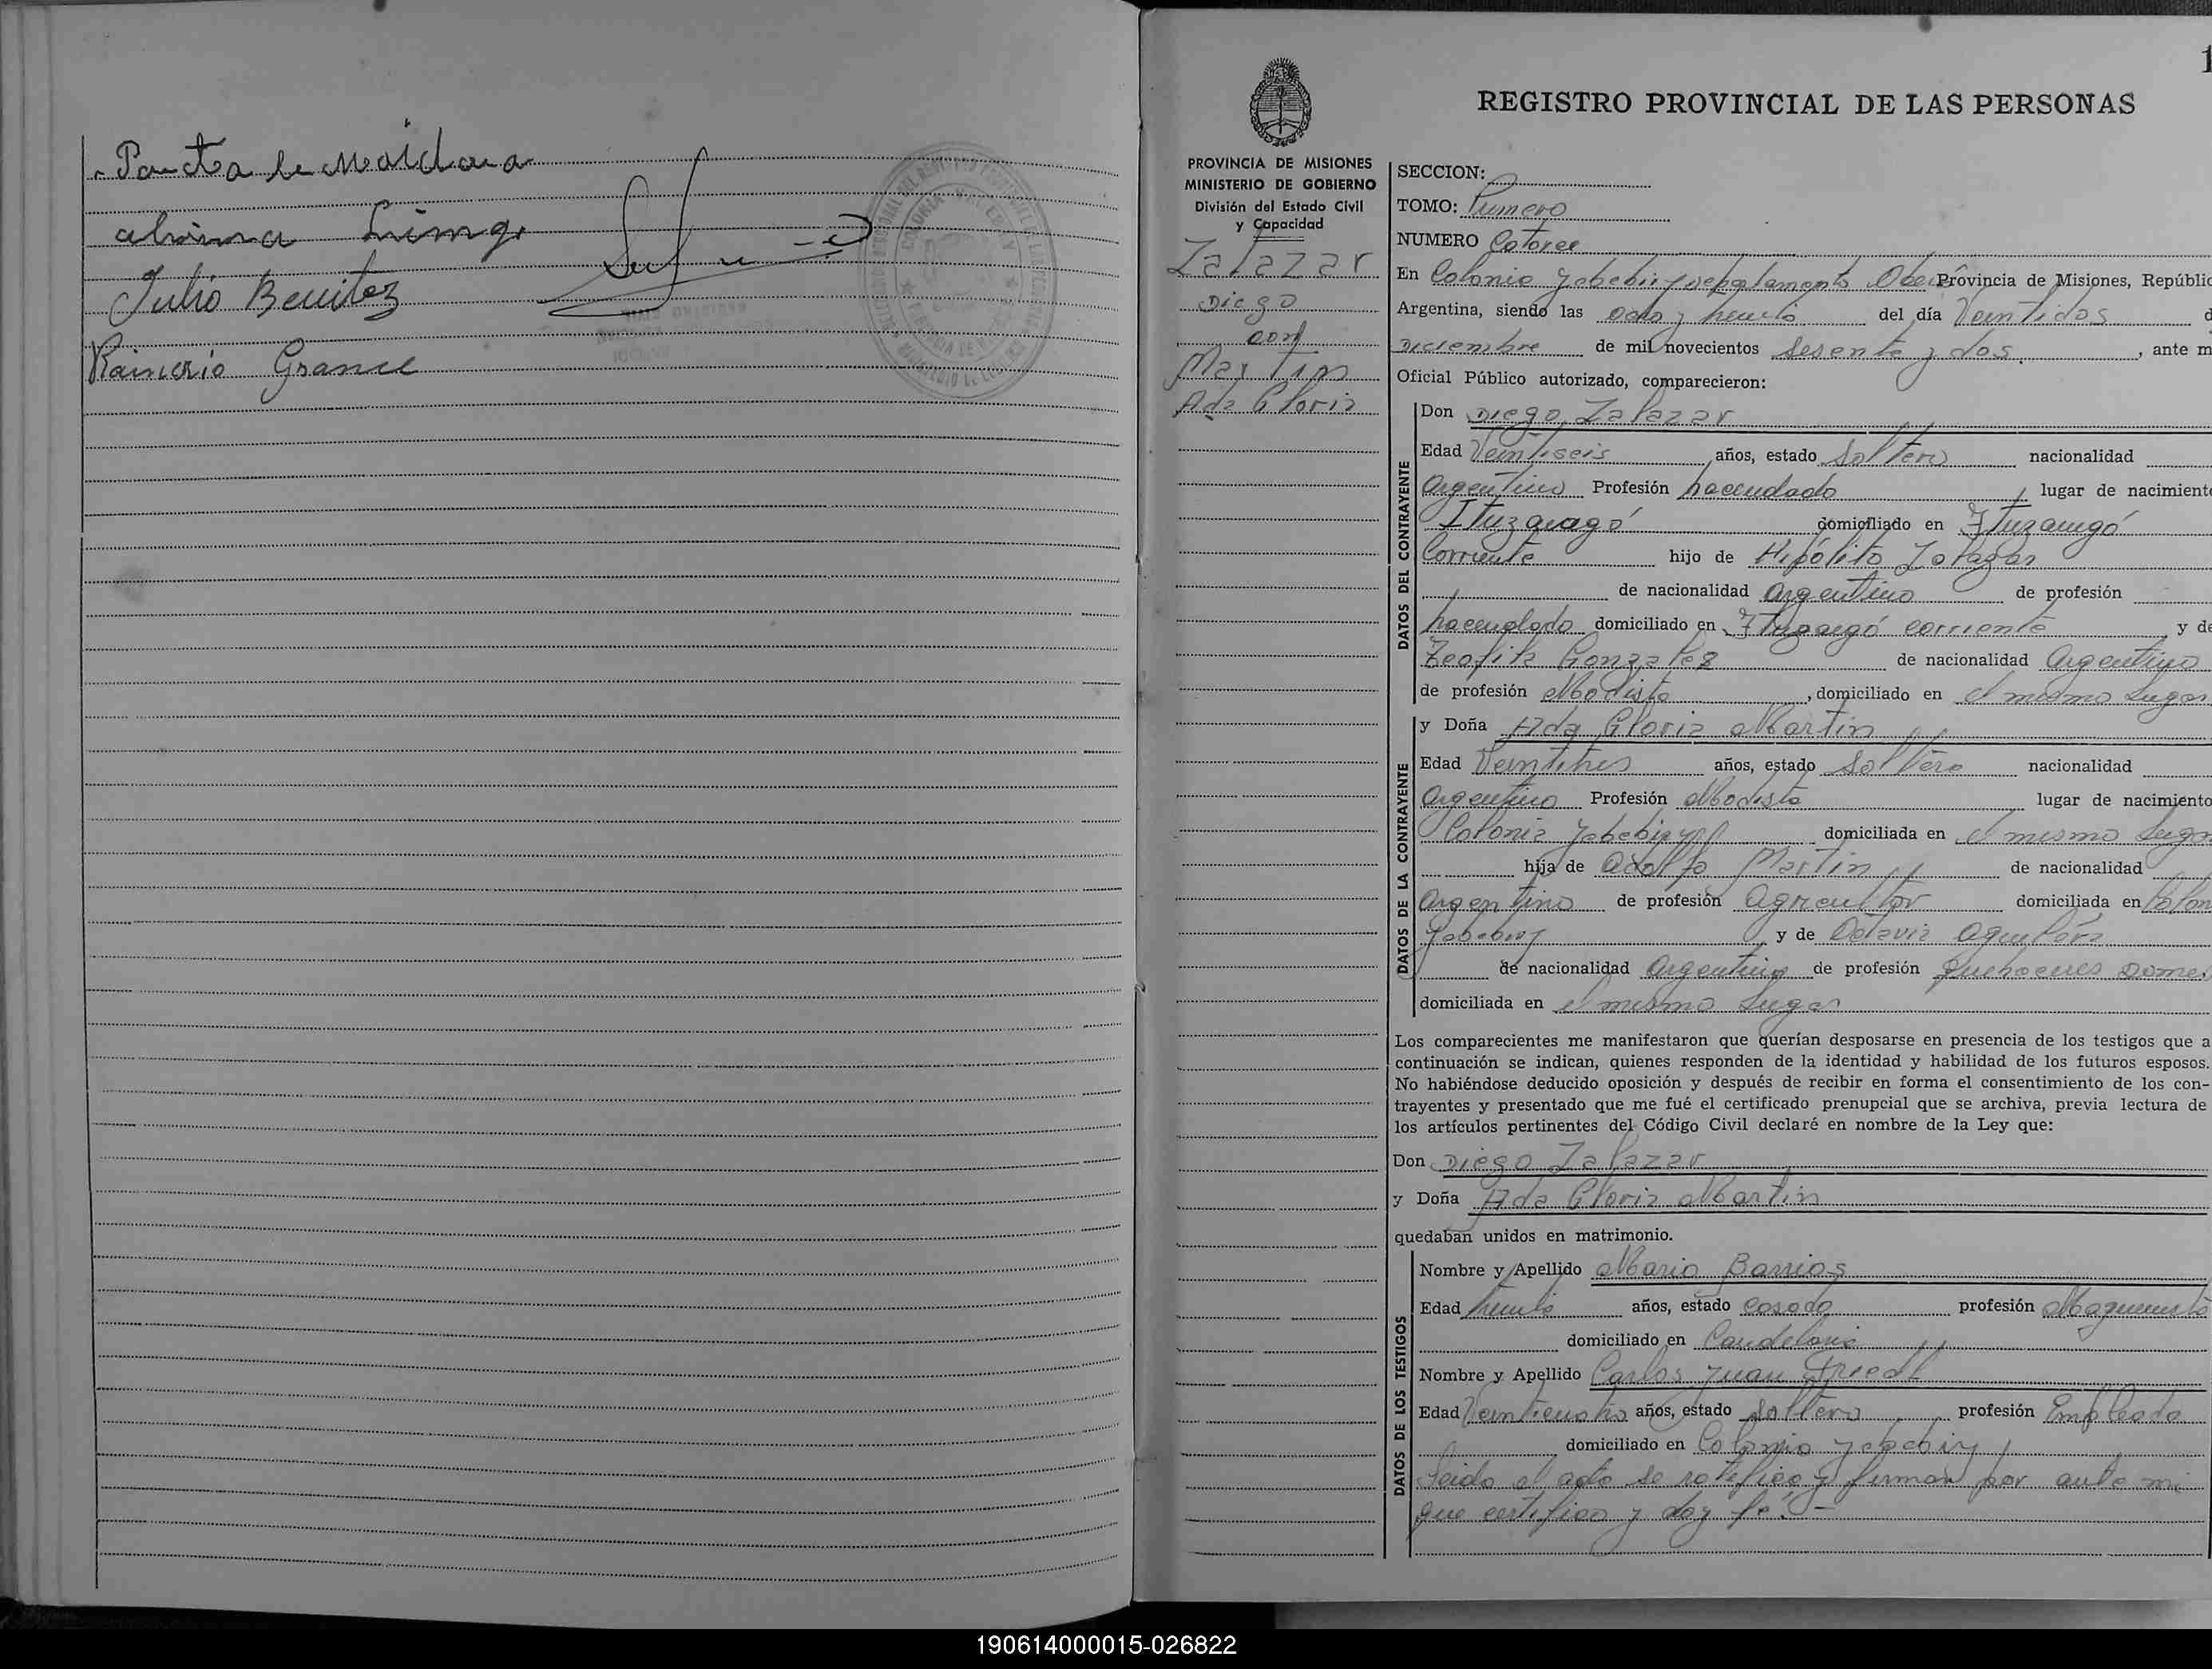 Julio Benitez
Rainerio Grance
REGISTRO PROVINCIAL DE LAS PERSONAS
PROVINCIA DE MISIONES
MINISTERIO DE GOBIERNO
División del Estado Civil
y Capacidad
Zalazar
Diego
con
Martin
Ada Gloria
SECCION:
TOMO: Primero
NUMERO Catorce
En Colonia Yabebiry departamento Provincia de Misiones, Repúblic
Argentina, siendo las ocho y treinta del día Veintidos d
Diciembre de mil novecientos sesenta y dos. , ante m
Oficial Público autorizado, comparecieron:
DATOS DEL CONTRAYENTE
Don Diego Zalazar
Edad Veintiseis años, estado Soltero nacionalidad
Argentino Profesión hacendado lugar de nacimiento
Ituzaingó domicliado en Ituzaingó
Corriente hijo de Hipólito Zalazar
de nacionalidad Argentino de profesión
hacendado domiciliado en Ituzaingó corriente y de
Teofila Gonzalez de nacionalidad Argentina
de profesión Modista , domiciliado en el mismo lugar
DATOS DE LA CONTRAYENTE
y Doña Ada Gloria Martin
Edad Veintitres años, estado Soltera nacionalidad
Argentina Profesión Modista lugar de nacimiento
Colonia Yabebiry domiciliada en el mismo lugar
hija de Adolfo Martin de nacionalidad
Argentino de profesión Agricultor domiciliada en Colon
Yabebiry y de Octavia Aguilera
de nacionalidad Argentina de profesión Quehaceres Domes
domiciliada en el mismo lugar
Los comparecientes me manifestaron que querían desposarse en presencia de los testigos que a
continuación se indican, quienes responden de la identidad y habilidad de los futuros esposos.
No habiéndose deducido oposición y después de recibir en forma el consentimiento de los con-
trayentes y presentado que me fué el certificado prenupcial que se archiva, previa lectura de
los artículos pertinentes del Código Civil declaré en nombre de la Ley que:
Don Diego Zalazar
y Doña Ada Gloria Martin
quedaban unidos en matrimonio.
DATOS DE LOS TESTIGOS
Nombre y Apellido Mario Barrios
Edad treinta años, estado casado profesión Maquinista
domiciliado en Candelaria
Nombre y Apellido Carlos Juan Friedl
Edad Veinticuatro años, estado soltero profesión Empleado
domiciliado en Colonia Yabebiry
Leida el acta se ratifico y firman por ante mi
que certifico y doy fé. -
190614000015-026822